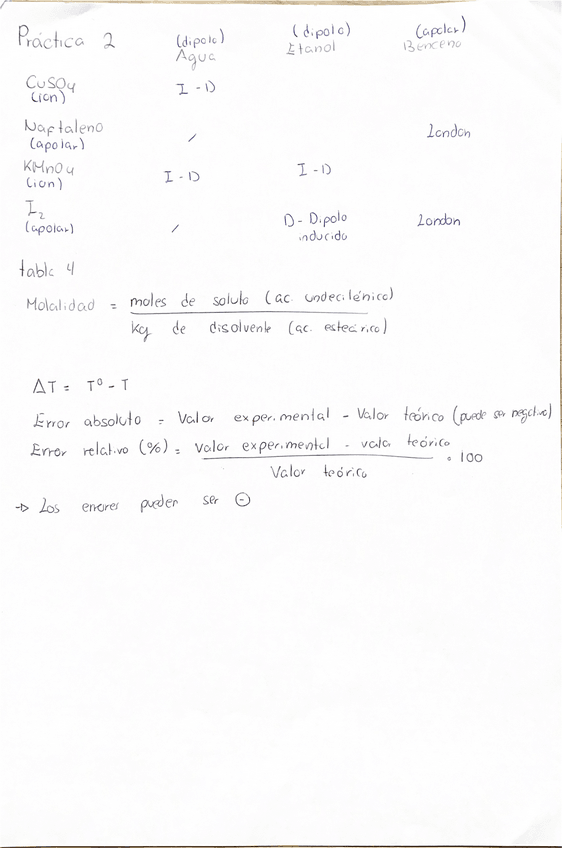 Práctica 2 (dipolo) (dipolo) (apolar)
Agua Etanol Benceno
CuSO4 I - D
(ion)
Naftaleno / London
(apolar)
KMnO4 I - D I - D
(ion)
I2 / D - Dipolo London
(apolar) inducido
tabla 4
Molalidad = moles de soluto (ac. undecilénico)
kg de disolvente (ac. esteárico)
ΔT = T° - T
Error absoluto = Valor experimental - Valor teórico (puede ser negativo)
Error relativo (%) = Valor experimental - valor teórico · 100
Valor teórico
→ Los errores pueden ser ⊖